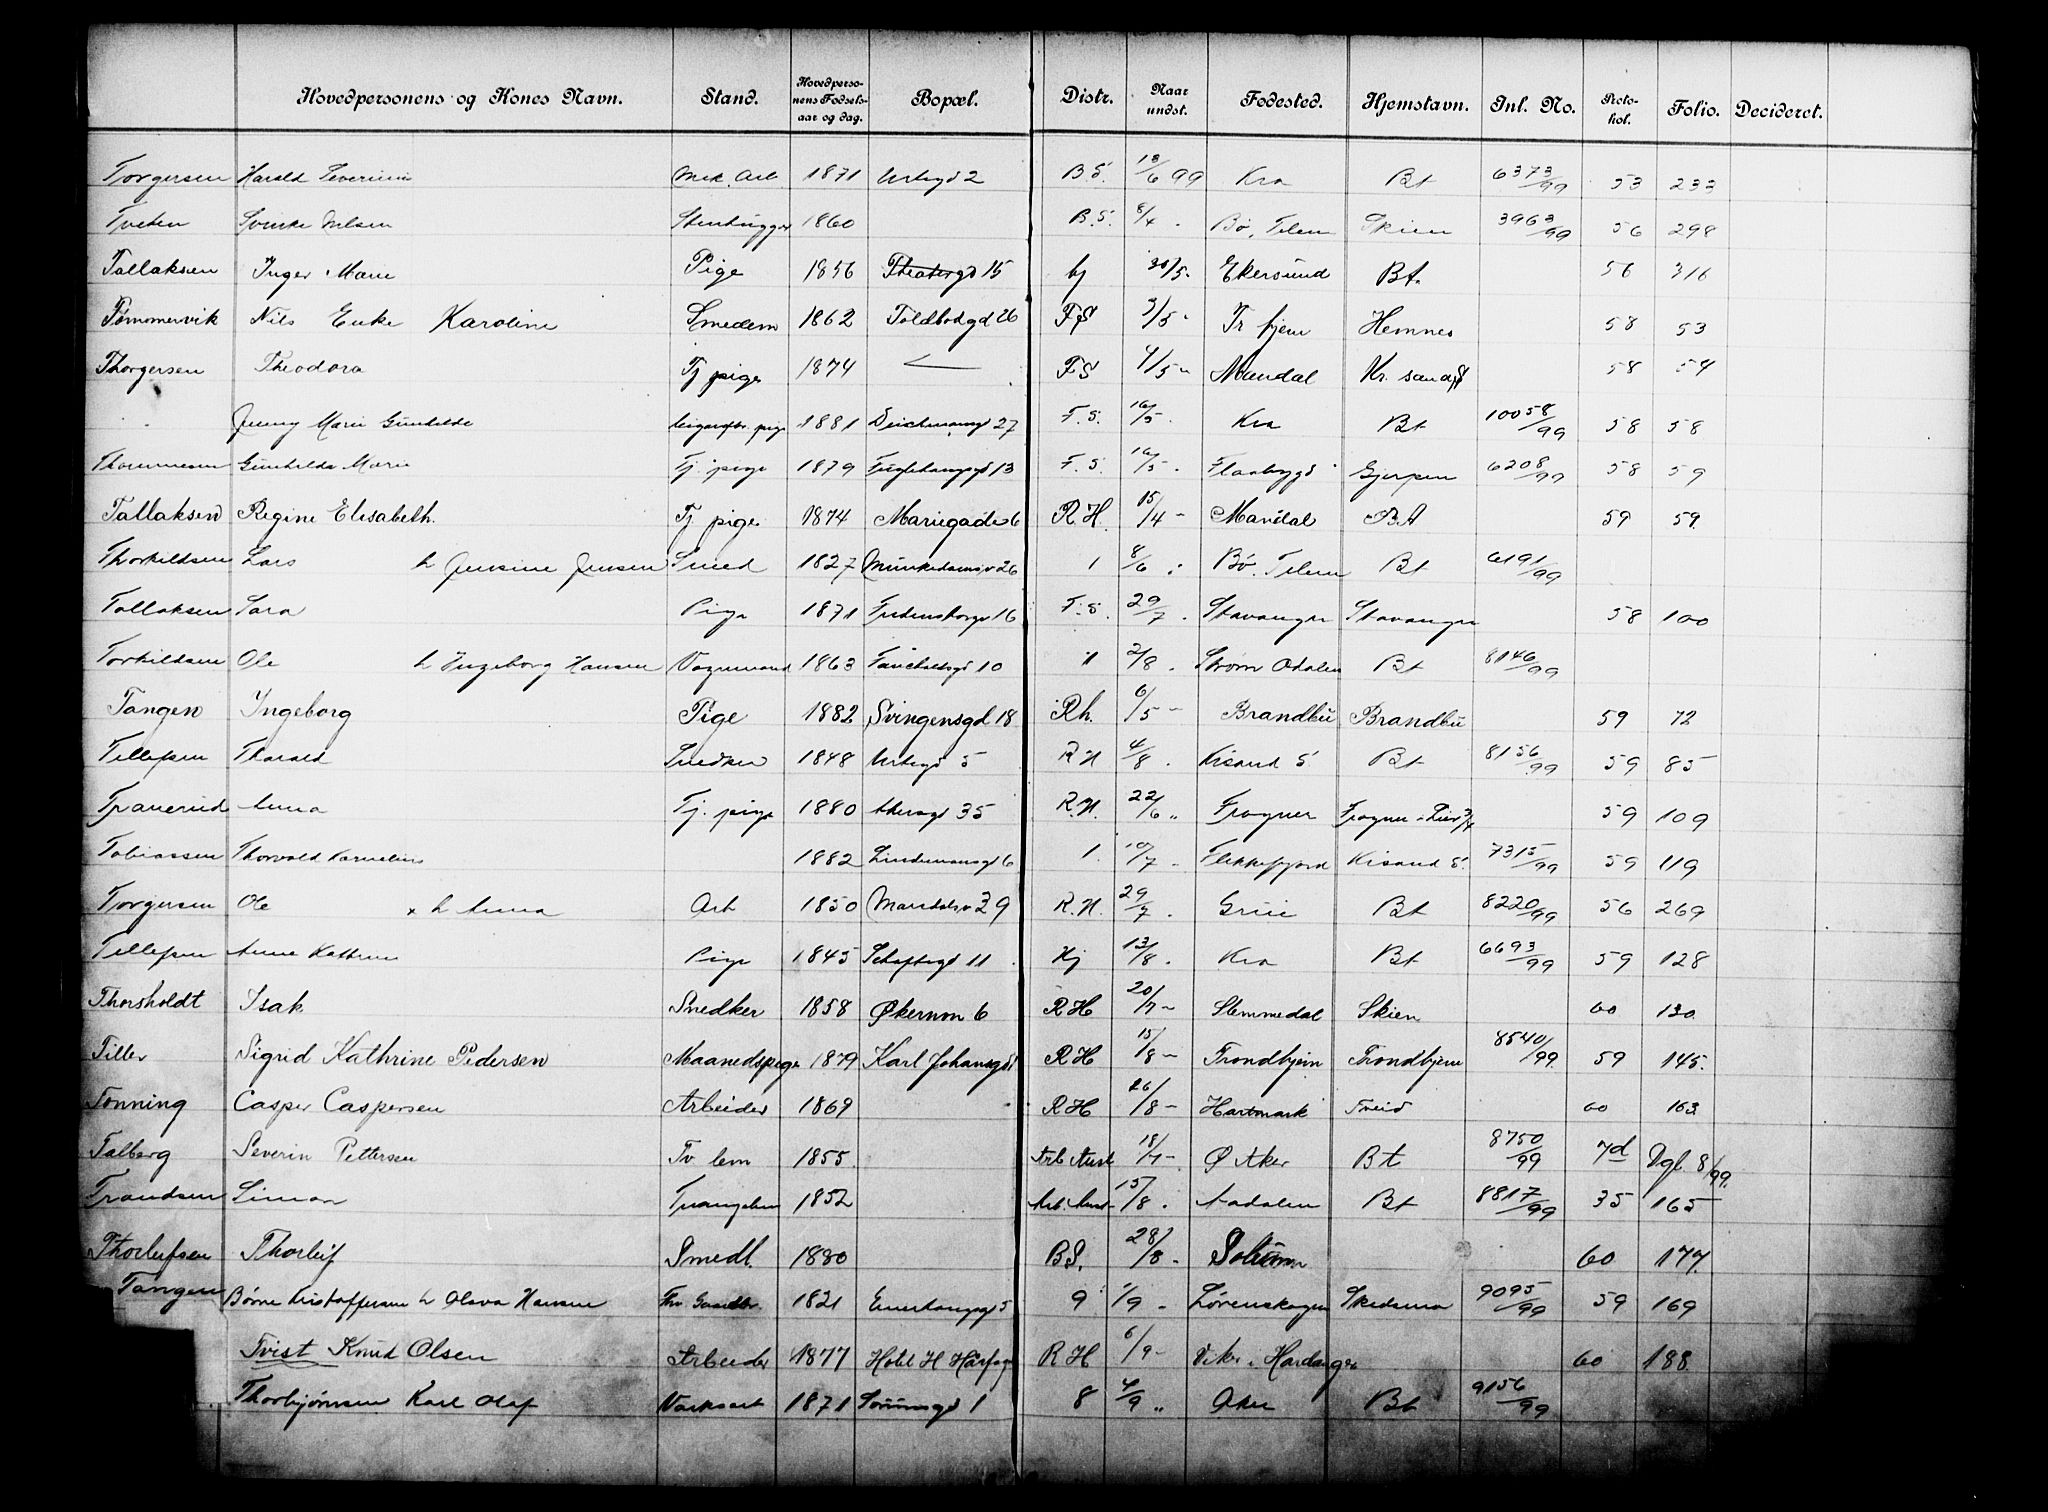 Hovedpersonens og Kones Navn. Stand. Hovedperso-nens Fødsels-aar og dag. Bopæl. Distr. Naar undst. Fødested. Hjemstavn. Inl. No. Proto-kol. Folio. Decideret.
Torgersen Harald Severinin Mek. Arb 1871 Urtegd 2 B.S. 13/6 99 Kra Bt 6373/99 53 233
Tveten Nilsen Stenhugger 1860 B.S. 8/4 Bø, Telem Skien 3963/99 56 298
Tallaksen Inger Marie Pige 1856 Theatergd 15 hj 30/5 Ekersund Bt. 56 316
Tømmervik Nils Enke Karoline Smedem 1862 Toldbodgd 26 FS 3/5 Tr hjem Hemnes 58 53
Thorgersen Theodora Tj pige 1874 FS 4/5 Mandal Kr. sand S 58 54
Jenny Marie Gunhilde pige 1881 Deichmansgd 27 F.S. 16/5 Kra Bt 10058/99 58 58
Thommesen Gunhilda Marie Tj. pige 1879 Fuglehaugsgd 13 F.S. 16/5 Flaabygd Gjerpen 6208/99 58 59
Tallaksen Regine Elisabeth. Tj pige 1874 Mariegade 6 R.H. 15/4 Mandal Bt 59 59
Thorkildsen Lars h Jensine Jensen Smed 1827 Munkedamsv 26 1 8/6 Bø. Telem Bt 6191/99
Tallaksen Sara Pige 1871 Fredensborgv 16 F.S. 29/7 Stavanger Stavanger 58 100
Torkildsen Ole h Ingeborg Hansen Vognmand 1863 Fauchaldsgd 10 11 2/8 Strøm Odalen Bt 8146/99
Tangen Ingeborg Pige 1882 Svingensgd 18 Rh. 6/5 Brandbu Brandbu 59 72
Tellefsen Tharald Snedker 1848 Urtegd 5 R.H 4/8 Krisand S Bt 8156/99 59 85
Tranerud Anna Tj. pige 1880 Akersgd 35 R.H. 22/6 Frogner Frogner i Lier 3/4 59 109
Tobiassen Thorvald Kornelius 1882 Lindemansgd 6 1. 10/7 Flekkefjord Krisand S. 7315/99 59 119
Torgersen Ole x h Anna Arb 1850 Maridalsv 39 R.H. 29/7 Grue Bt 8220/99 56 269
Tellefsen Anne Kathrine Pige 1845 Schaftsgd 11 Hj 13/8 Kra Bt 6693/99 59 128
Thorsholdt Isak Snedker 1858 Økernvn 6 RH 20/7 Slemmedal Skien 60 130
Tiller Sigrid Kathrine Pedersen Maanedspige 1879 Karl Johansgd 1 RH 15/8 Trondhjem Trondhjem 8540/99 59 145.
Tønning Casper Caspersen Arbeider 1869 RH 26/8 Hartmark Tveid 60 163
Talberg Severin Pettersen Tv lem 1855 Arb Anst 18/7 Ø Aker Bt 8750/99 7d Dgl 8/99.
Trandsen Simon Tvangslem 1852 Arb. Anst 15/8 Aadalen Bt 8817/99 35 165
Thorleifsen Thorleif Smedl. 1880 BS. 28/8 Solum 60 177.
Tangen Børre Kristoffersen h Olava Hansen 1821 Enerhaugsgd 5 9 1/9 Lørenskogen Skedsmo 9095/99 59 169
Tvist Knud Olsen Arbeider 1877 Hotel H Hårfagr RH 6/9 Vikør i Hardanger 60 188
Thorbjørnsen Karl Olaf Værksarb 1871 Sørumsgd 1 8 4/9 Aker Bt 9156/99